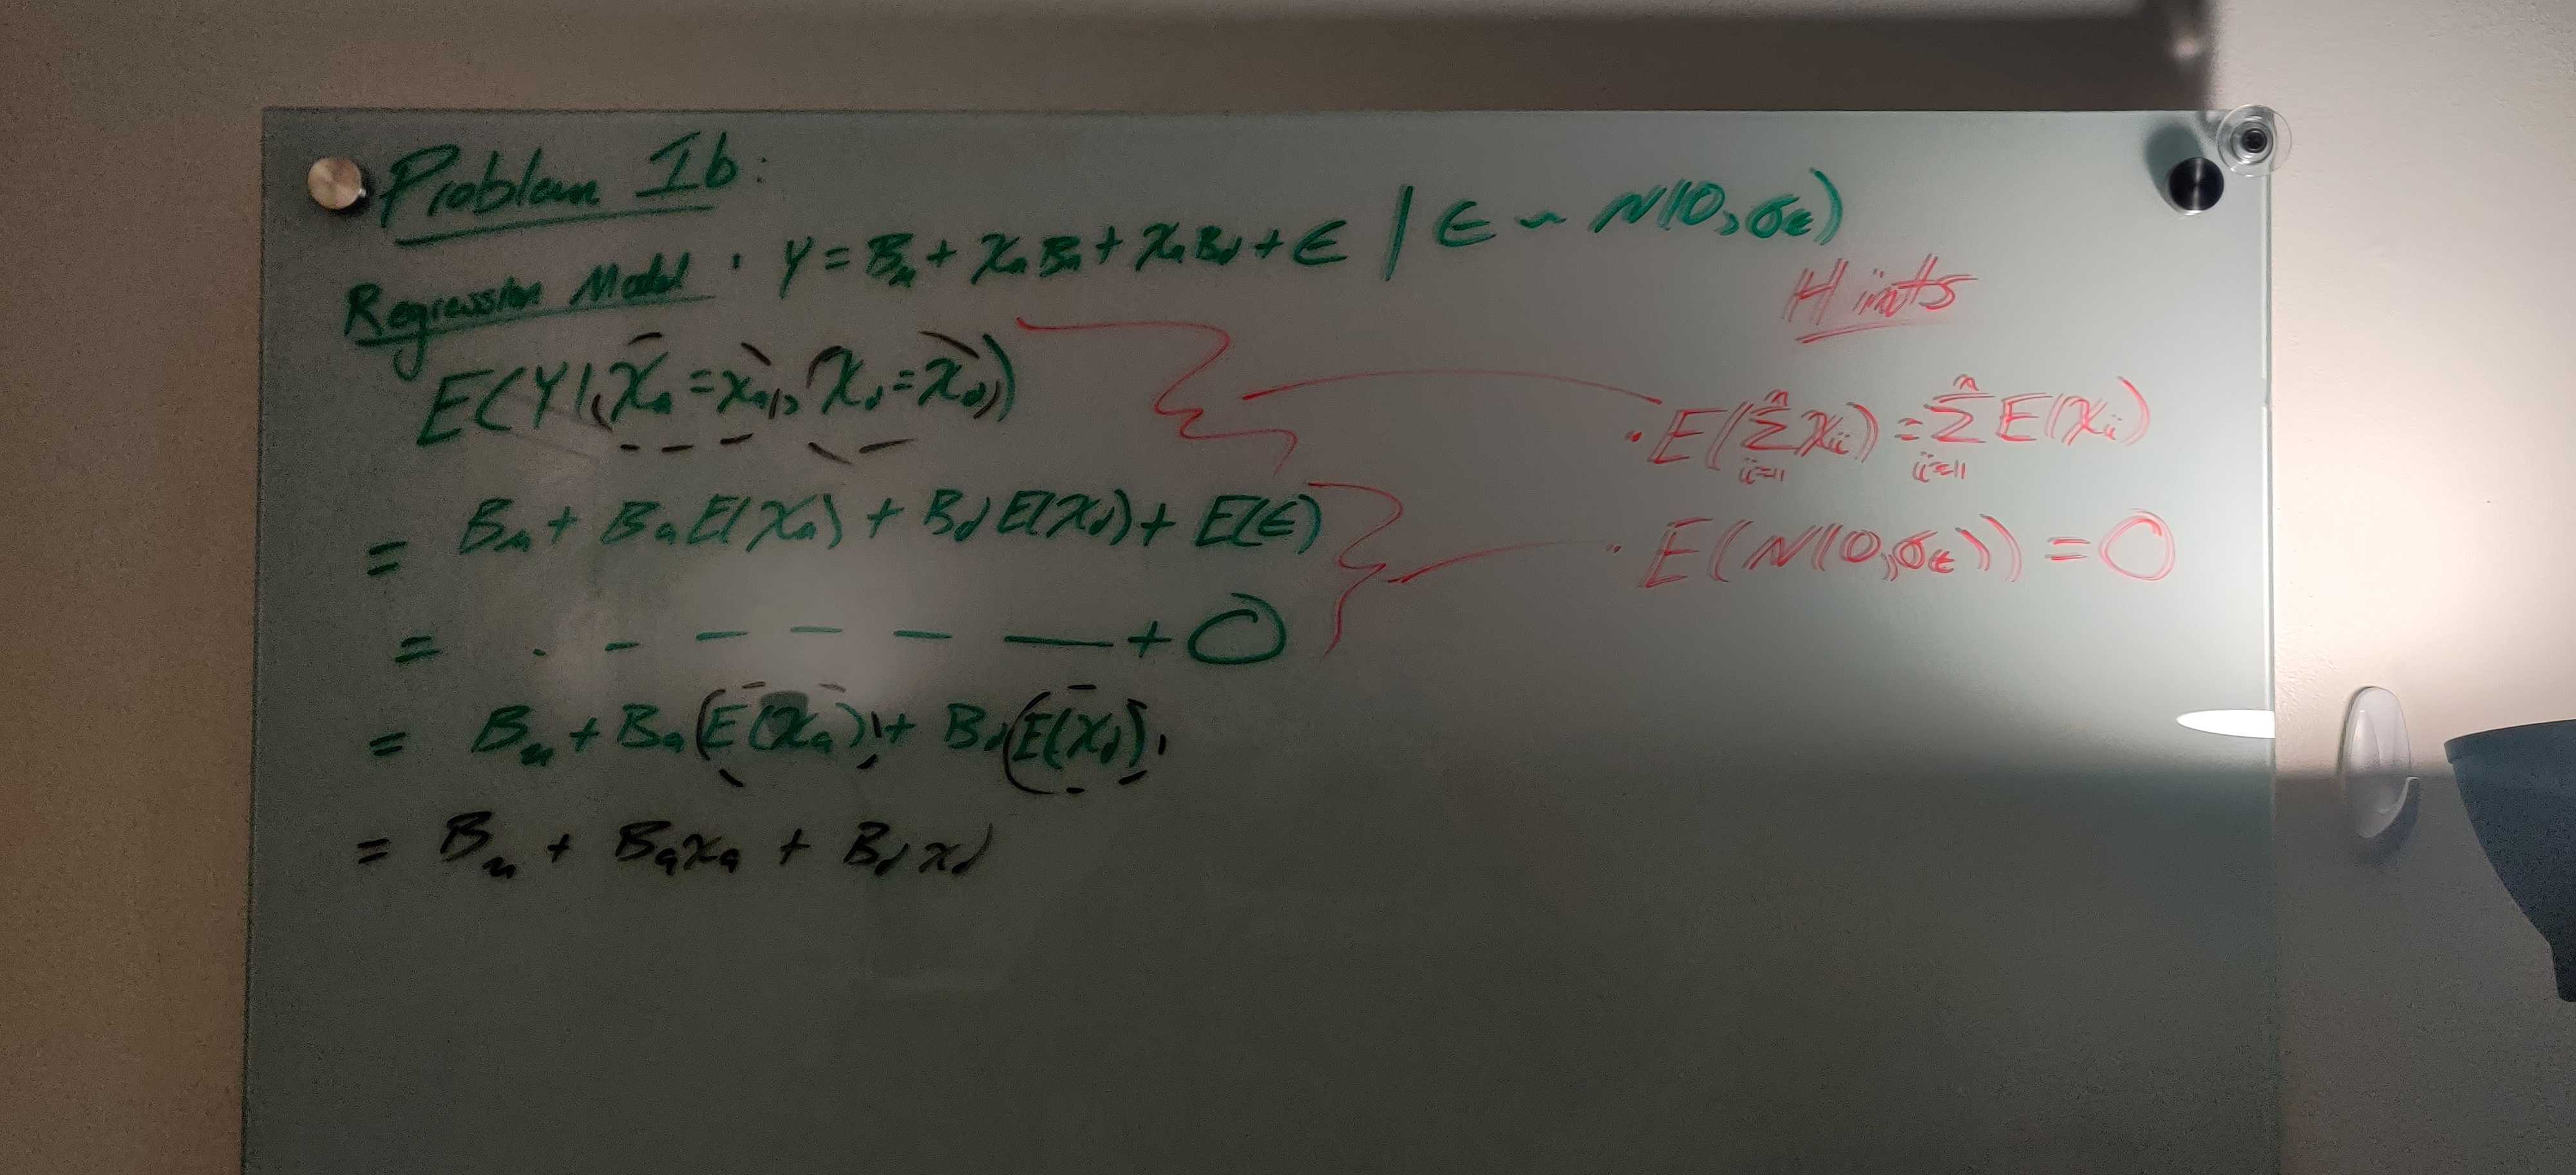 Problem Ib:
Regression Model : Y = Bμ + XaBa + XaBd + ϵ | ϵ ~ N(0, σϵ)
E(Y|(Xa = xa), (Xd = xd))
= Bμ + BaE(Xa) + BdE(Xd) + E(ϵ)
= . - - - - — + 0
= Bμ + Ba(E(Xa)) + Bd(E(Xd))
= Bμ + Baxa + Bdxd
Hints
· E(∑ᵢ₌₁ⁿ Xi) = ∑ᵢ₌₁ⁿ E(Xi)
· E(N(0, σϵ)) = 0